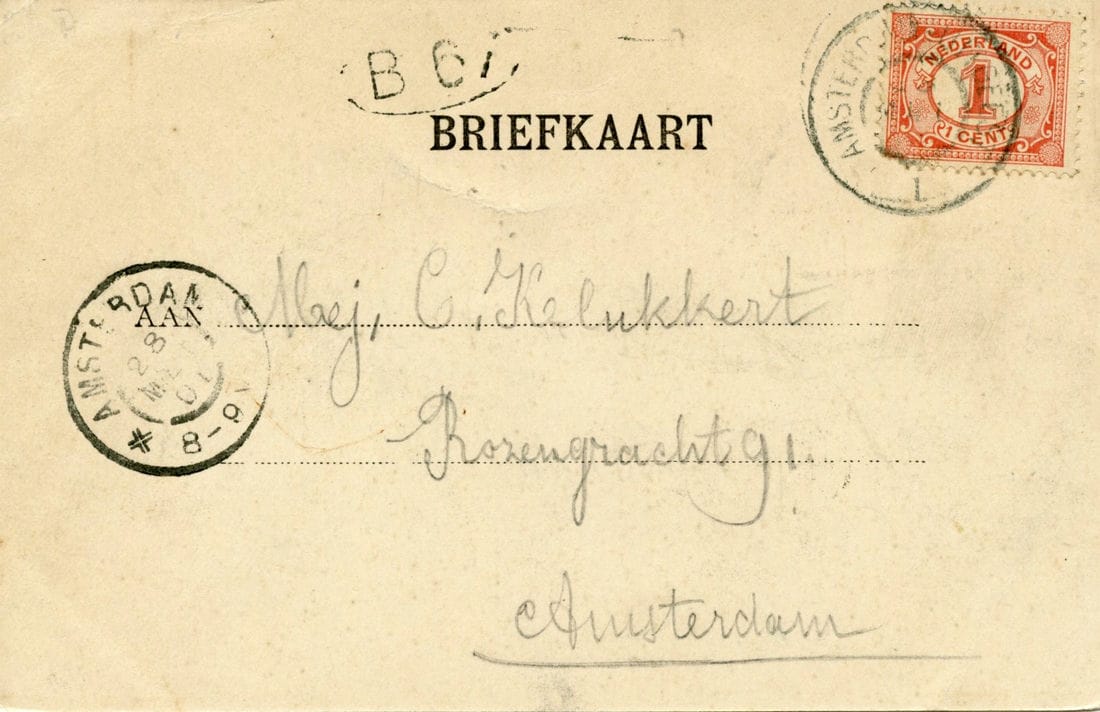 B 67
BRIEFKAART
NEDERLAND
1
1 CENT
AMSTERDAM
1
AMSTERDAM
28
01
8-9V
AAN Mej, C, Kelukkert
Rozengracht 91.
Amsterdam